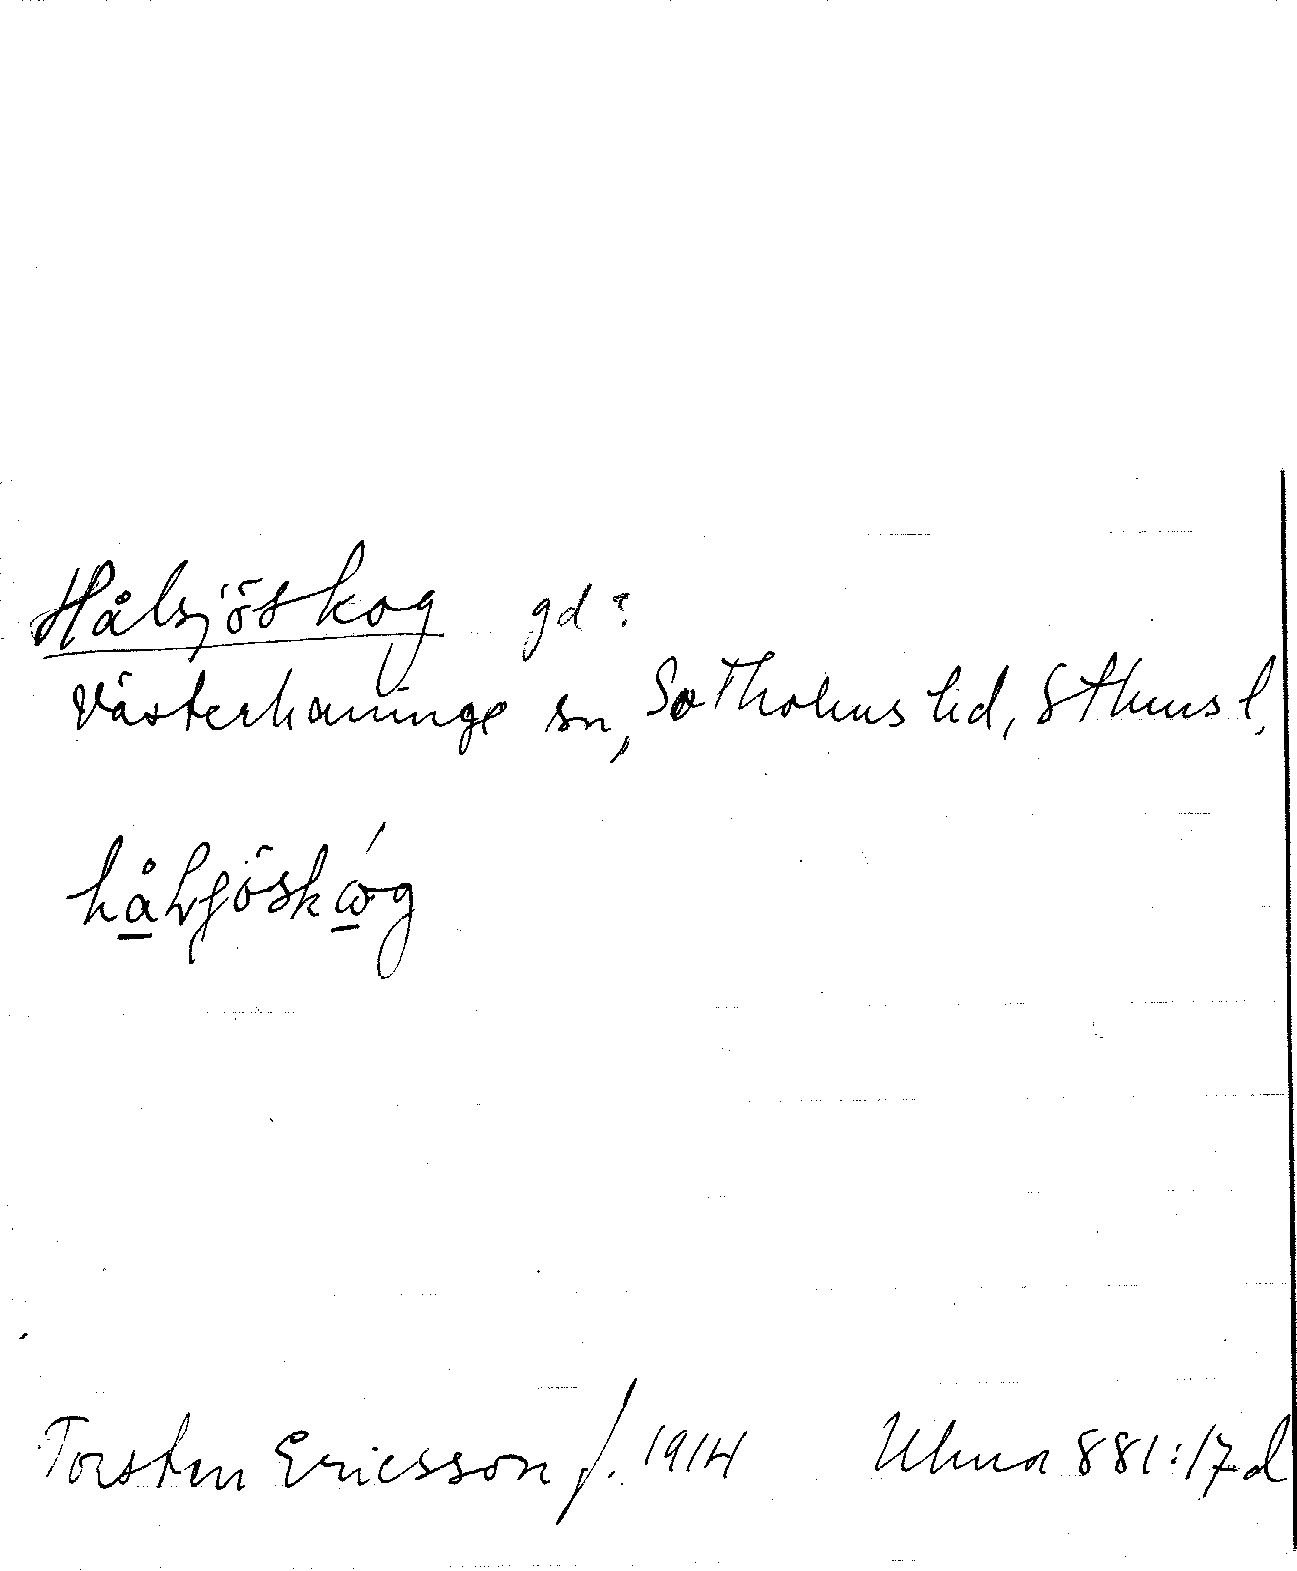 Hålsjöskog gd?
Västerhaninge sn, Sotholms hd, Sthms l.
hålsjöskóg
Torsten Ericsson f. 1914 Ulma 881:17d